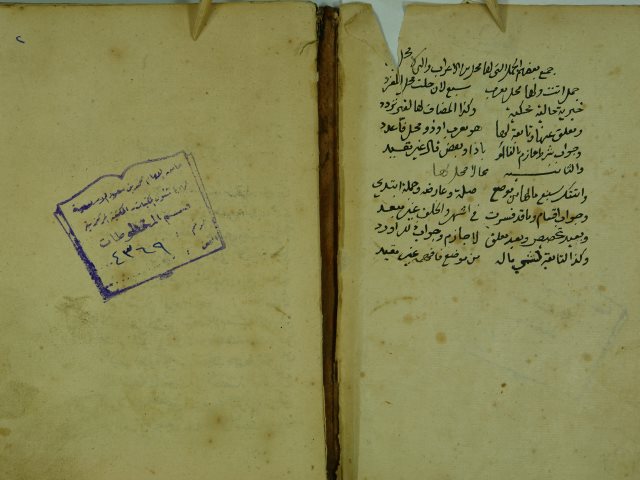 جمع بعضهم الجمل التي لها محل من الاعراب والتي لا محل
جمل اتت ولها محل معرب سبع لان حلت محل المفرد
خبرية حالية محكية وكذا المضاف لها لغير تردد
ومعلق عنها وتابعة لما هو معرب او ذو محل فاعدد
وجواب شرط جازم بالفا او باذا وبعض قال غير مقيد
والثانية مما لا محل لها
واتتك سبع ما لها من موضع صلة وعارضة وجملة مبتدي
وجواب اقسام وما قد فسرت في اشهر والخلف غير مبعد
وبعيد تحضيض وبعد معلق لا جازم وجواب ذلك اورد
وكذا التابعة لشيء ما له من موضع فاحفظ غير مفند
٢
قسم المخطوطات
٤٣٦٩